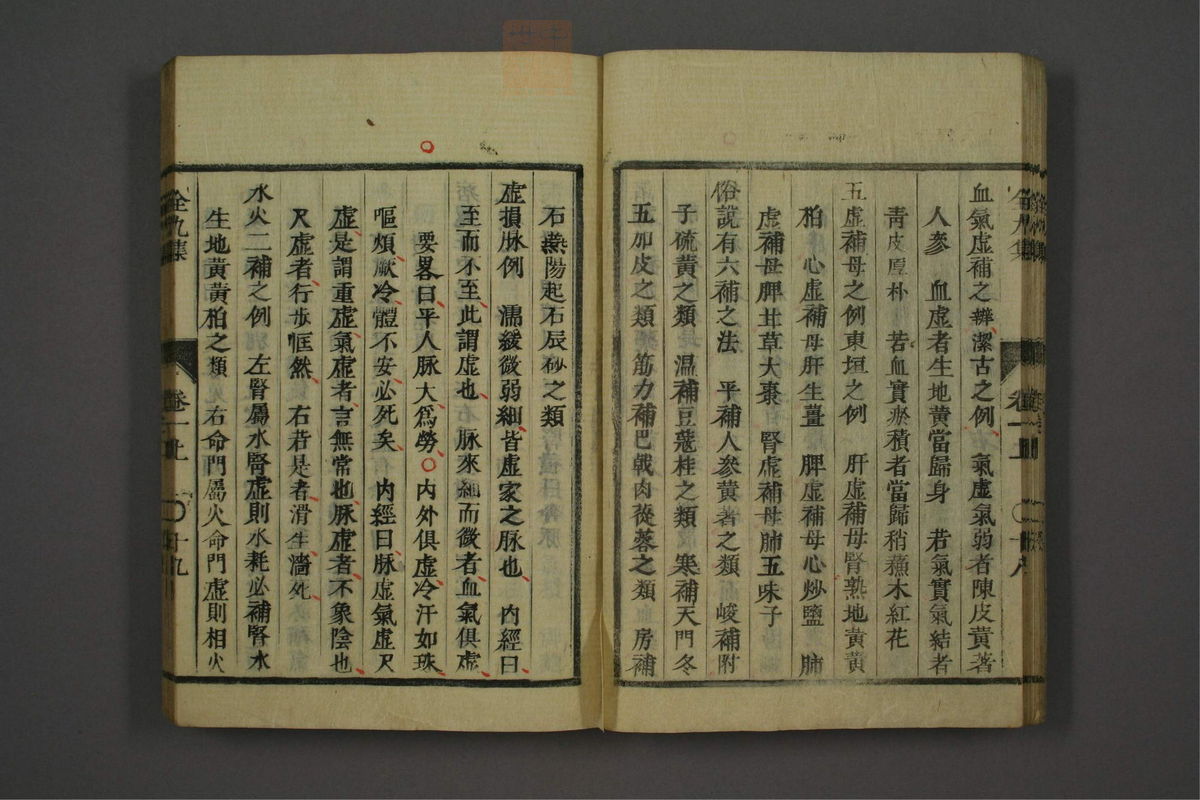 血氣虛補之辨潔古之例 氣虛氣弱者陳皮黃著
人參 血虛者生地黃當歸身 若氣實氣結者
靑皮厚朴 若血實瘀積者當歸稍蘓木紅花
五虛補母之例東垣之例 肝虛補母腎熟地黃黃
柏 心虛補母肝生薑 脾虛補母心炒鹽 肺
虛補母脾甘草大棗 腎虛補母肺五味子
俗說有六補之法 平補人參黃著之類 峻補附
子硫黃之類 溫補豆蔻桂之類 寒補天門冬
五加皮之類 筋力補巴戟肉蓯蓉之類 房補
石燕陽起石辰砂之類
虛損脉例 濡緩微弱細皆虛家之脉也 內經曰
至而不至此謂虛也 脉來細而微者血氣俱虛
要畧曰平人脉大爲勞○內外俱虛冷汗如珠
嘔煩厥冷體不安必死矣 內經曰脉虛氣虛尺
虛是謂重虛氣虛者言無常也脉虛者不象陰也
尺虛者行步恇然 右若是者滑生濇死
水火二補之例 左腎屬水腎虛則水耗必補腎水
生地黃黃柏之類 右命門屬火命門虛則相火
全九集
卷一上
十九